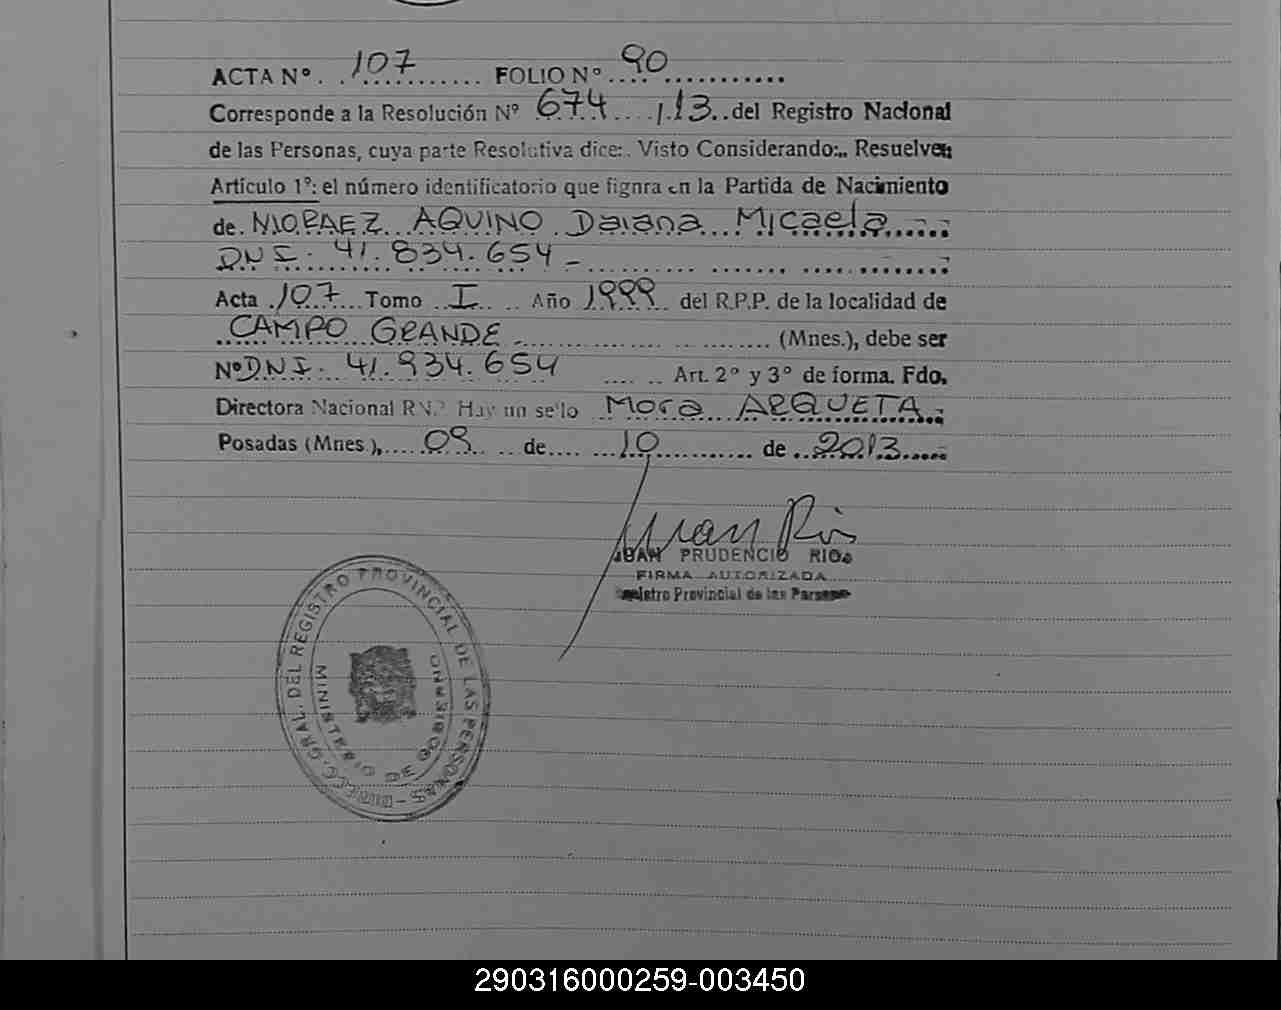 ACTA Nº 107 FOLIO Nº 90
Corresponde a la Resolución Nº 674 / 13 del Registro Nacional
de las Personas, cuya parte Resolutiva dice: Visto Considerando: Resuelve:
Artículo 1º: el número identificatorio que fignra en la Partida de Nacimiento
de AQUINO Daiana Micaela
DNI. 41.834.654 -
Acta 107 Tomo I Año 1999 del R.P.P. de la localidad de
CAMPO GRANDE (Mnes.), debe ser
Nº DNI. 41.934.654 Art. 2º y 3º de forma. Fdo.
Directora Nacional RN.P. Hay un sello Mora ARQUETA
Posadas (Mnes.), 09 de 10 de 2013
Juan Rios
JUAN PRUDENCIO RIOS
FIRMA AUTORIZADA
Registro Provincial de las Personas
DIREC. GRAL. DEL REGISTRO PROVINCIAL DE LAS PERSONAS -
MINISTERIO DE GOBIERNO
290316000259-003450